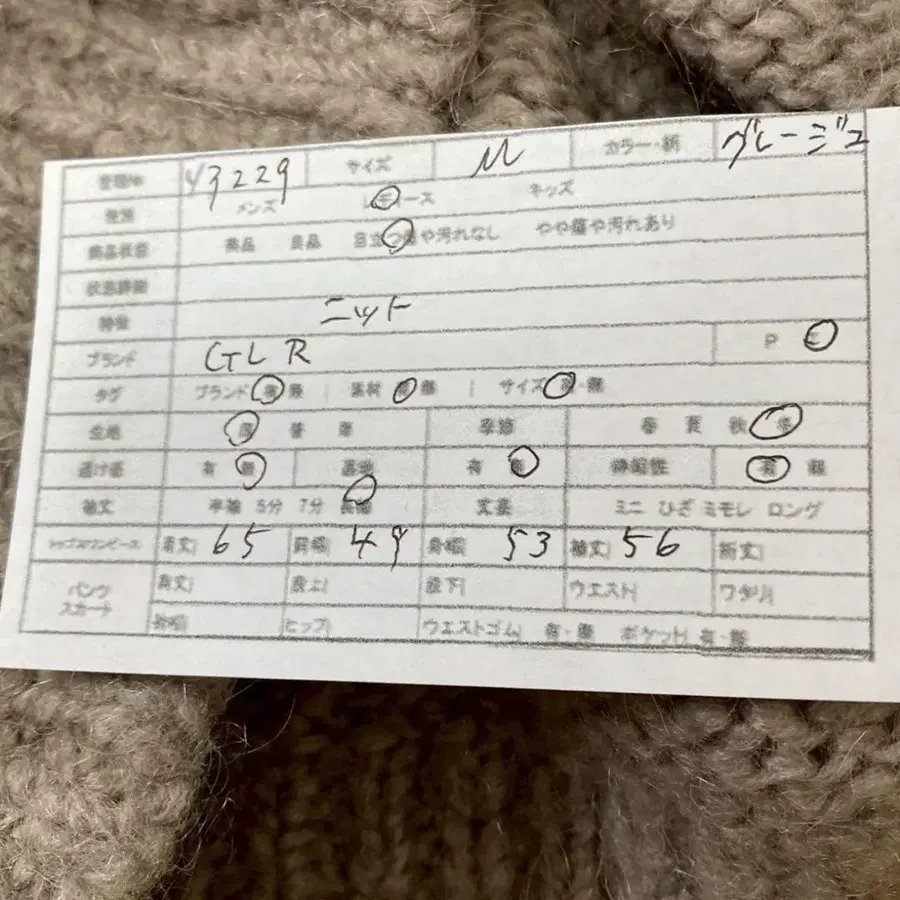 管理No 43229 サイズ M カラー・柄 グレージュ
種別 メンズ レディース キッズ
商品状態 美品 良品 目立つ傷や汚れなし やや傷や汚れあり
状態詳細
特徴 ニット
ブランド GLR P
タグ ブランド 有・無 素材 有・無 サイズ 有・無
生地 厚 普 薄 季節 春 夏 秋 冬
透け感 有 無 裏地 有 無 伸縮性 有 無
袖丈 半袖 5分 7分 長袖 丈長 ミニ ひざ ミモレ ロング
トップス/ワンピース 着丈 65 肩幅 49 身幅 53 袖丈 56 裄丈
パンツ スカート 総丈 股上 股下 ウエスト ワタリ
裾幅 ヒップ ウエストゴム 有・無 ポケット 有・無